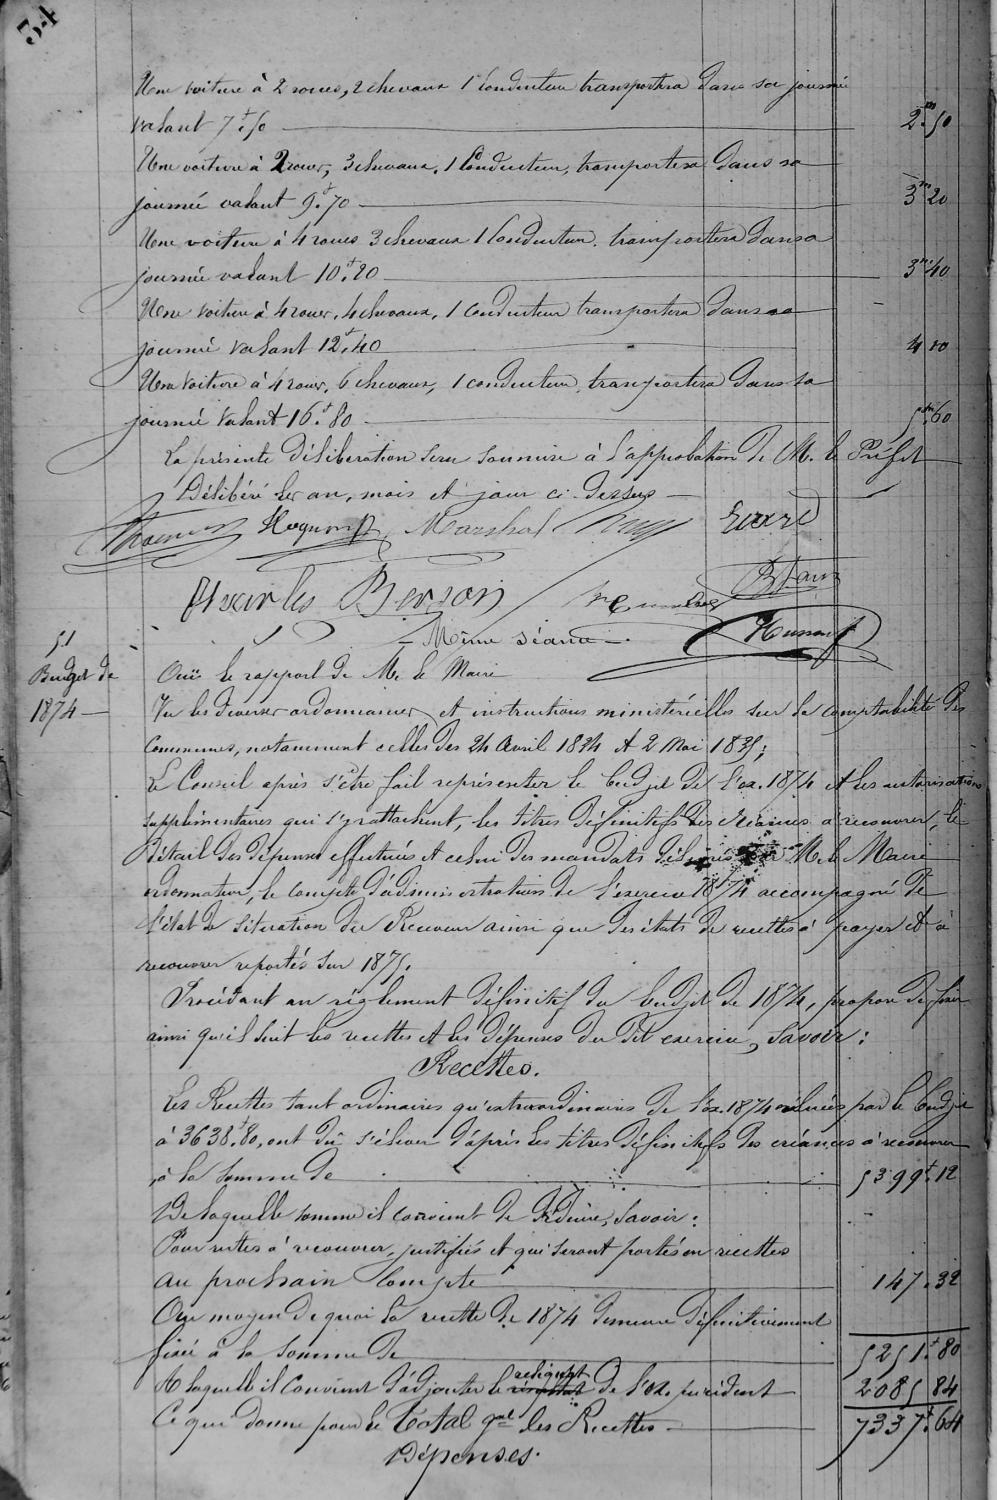 34
Une voiture à 2 roues, 2 chevaux 1 Conducteur transportera dans sa journée
valant 7f.50 2m.50
Une voiture à 2 roues, 3 chevaux, 1 Conducteur, transportera dans sa
journée valant 9f.70 3m20
Une voiture à 4 roues 3 chevaux 1 Conducteur. transportera dans sa
journée valant 10f.20 3m.40
Une voiture à 4 roues, 4 chevaux, 1 Conducteur transportera dans sa
journée valant 12f.40
Une voiture à 4 roues, 6 chevaux, 1 conducteur, transportera dans sa
journée valant 16f.80 5m.60
La présente délibération sera soumise à l'approbation de M. le Préfet
Délibéré les an, mois et jour ci-dessus —
Marshal
Charles Berson
— Même séance —
51
Budget de
1874 —
Ouï le rapport de M. le Maire
Vu les diverses ordonnances et instructions ministérielles sur la comptabilité des
Communes, notamment celles des 24 Avril 1834 et 2 Mai 1835;
Le Conseil après s'être fait représenter le budjet de l'ex. 1874 et les autorisations
supplémentaires qui s'y rattachent, les titres définitifs des créances à recouvrer, le
détail des dépenses effectuées et celui des mandats délivrés par M. le Maire
ordonnateur, le compte d'administration de l'exercice 1874 accompagné de
l'état de situation du Receveur ainsi que des états de recettes à payer et à
recouvrer reportés sur 1875.
Procédant au règlement définitif du budjet de 1874, propose de fixer
ainsi qu'il suit les recettes et les dépenses du dit exercice, savoir :
Recettes.
Les Recettes tant ordinaires qu'extraordinaires de l'ex. 1874 évaluées par le budjet
à 3638f.80, ont dû s'élever d'après les titres définitifs des créances à recouvrer
à la somme de 5399f.12
De laquelle somme il convient de déduire, savoir :
Pour restes à recouvrer, justifiés et qui seront portés en recettes
au prochain Compte 147.32
Au moyen de quoi la recette de 1874 demeure définitivement
fixée à la somme de 5251f.80
A laquelle il convient d'adjouter le reliquat de l'ex. précédent 2085 84
Ce que donne pour le Total gal les Recettes 7337f.64
Dépenses.